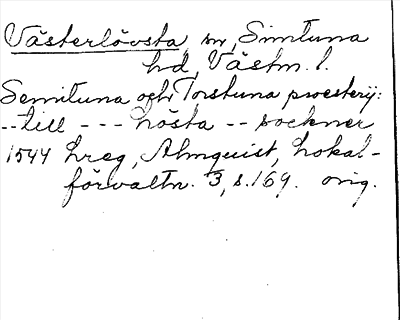 Västerlövsta, sn, Simtuna
hd, Västm. l.
Semituna och Torstuna proesterij:
-- till --- hösta -- sockner
1544 hreg, Almquist, Lokal-
förvaltn. 3, s. 169. orig.